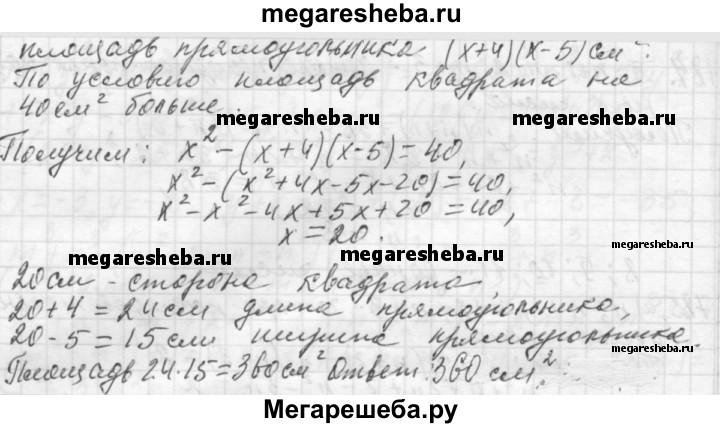 megaresheba.ru
площадь прямоугольника (x+4)(x-5) см².
По условию площадь квадрата на
40 см² больше.
megaresheba.ru megaresheba.ru
Получим: x²-(x+4)(x-5)=40,
x²-(x²+4x-5x-20)=40,
x²-x²-4x+5x+20=40,
x=20.
megaresheba.ru megaresheba.ru
20 см - сторона квадрата,
20+4=24 см длина прямоугольника,
20-5=15 см ширина прямоугольника.
megaresheba.ru
Площадь 24·15=360 см² Ответ: 360 см².
Мегарешеба.ру